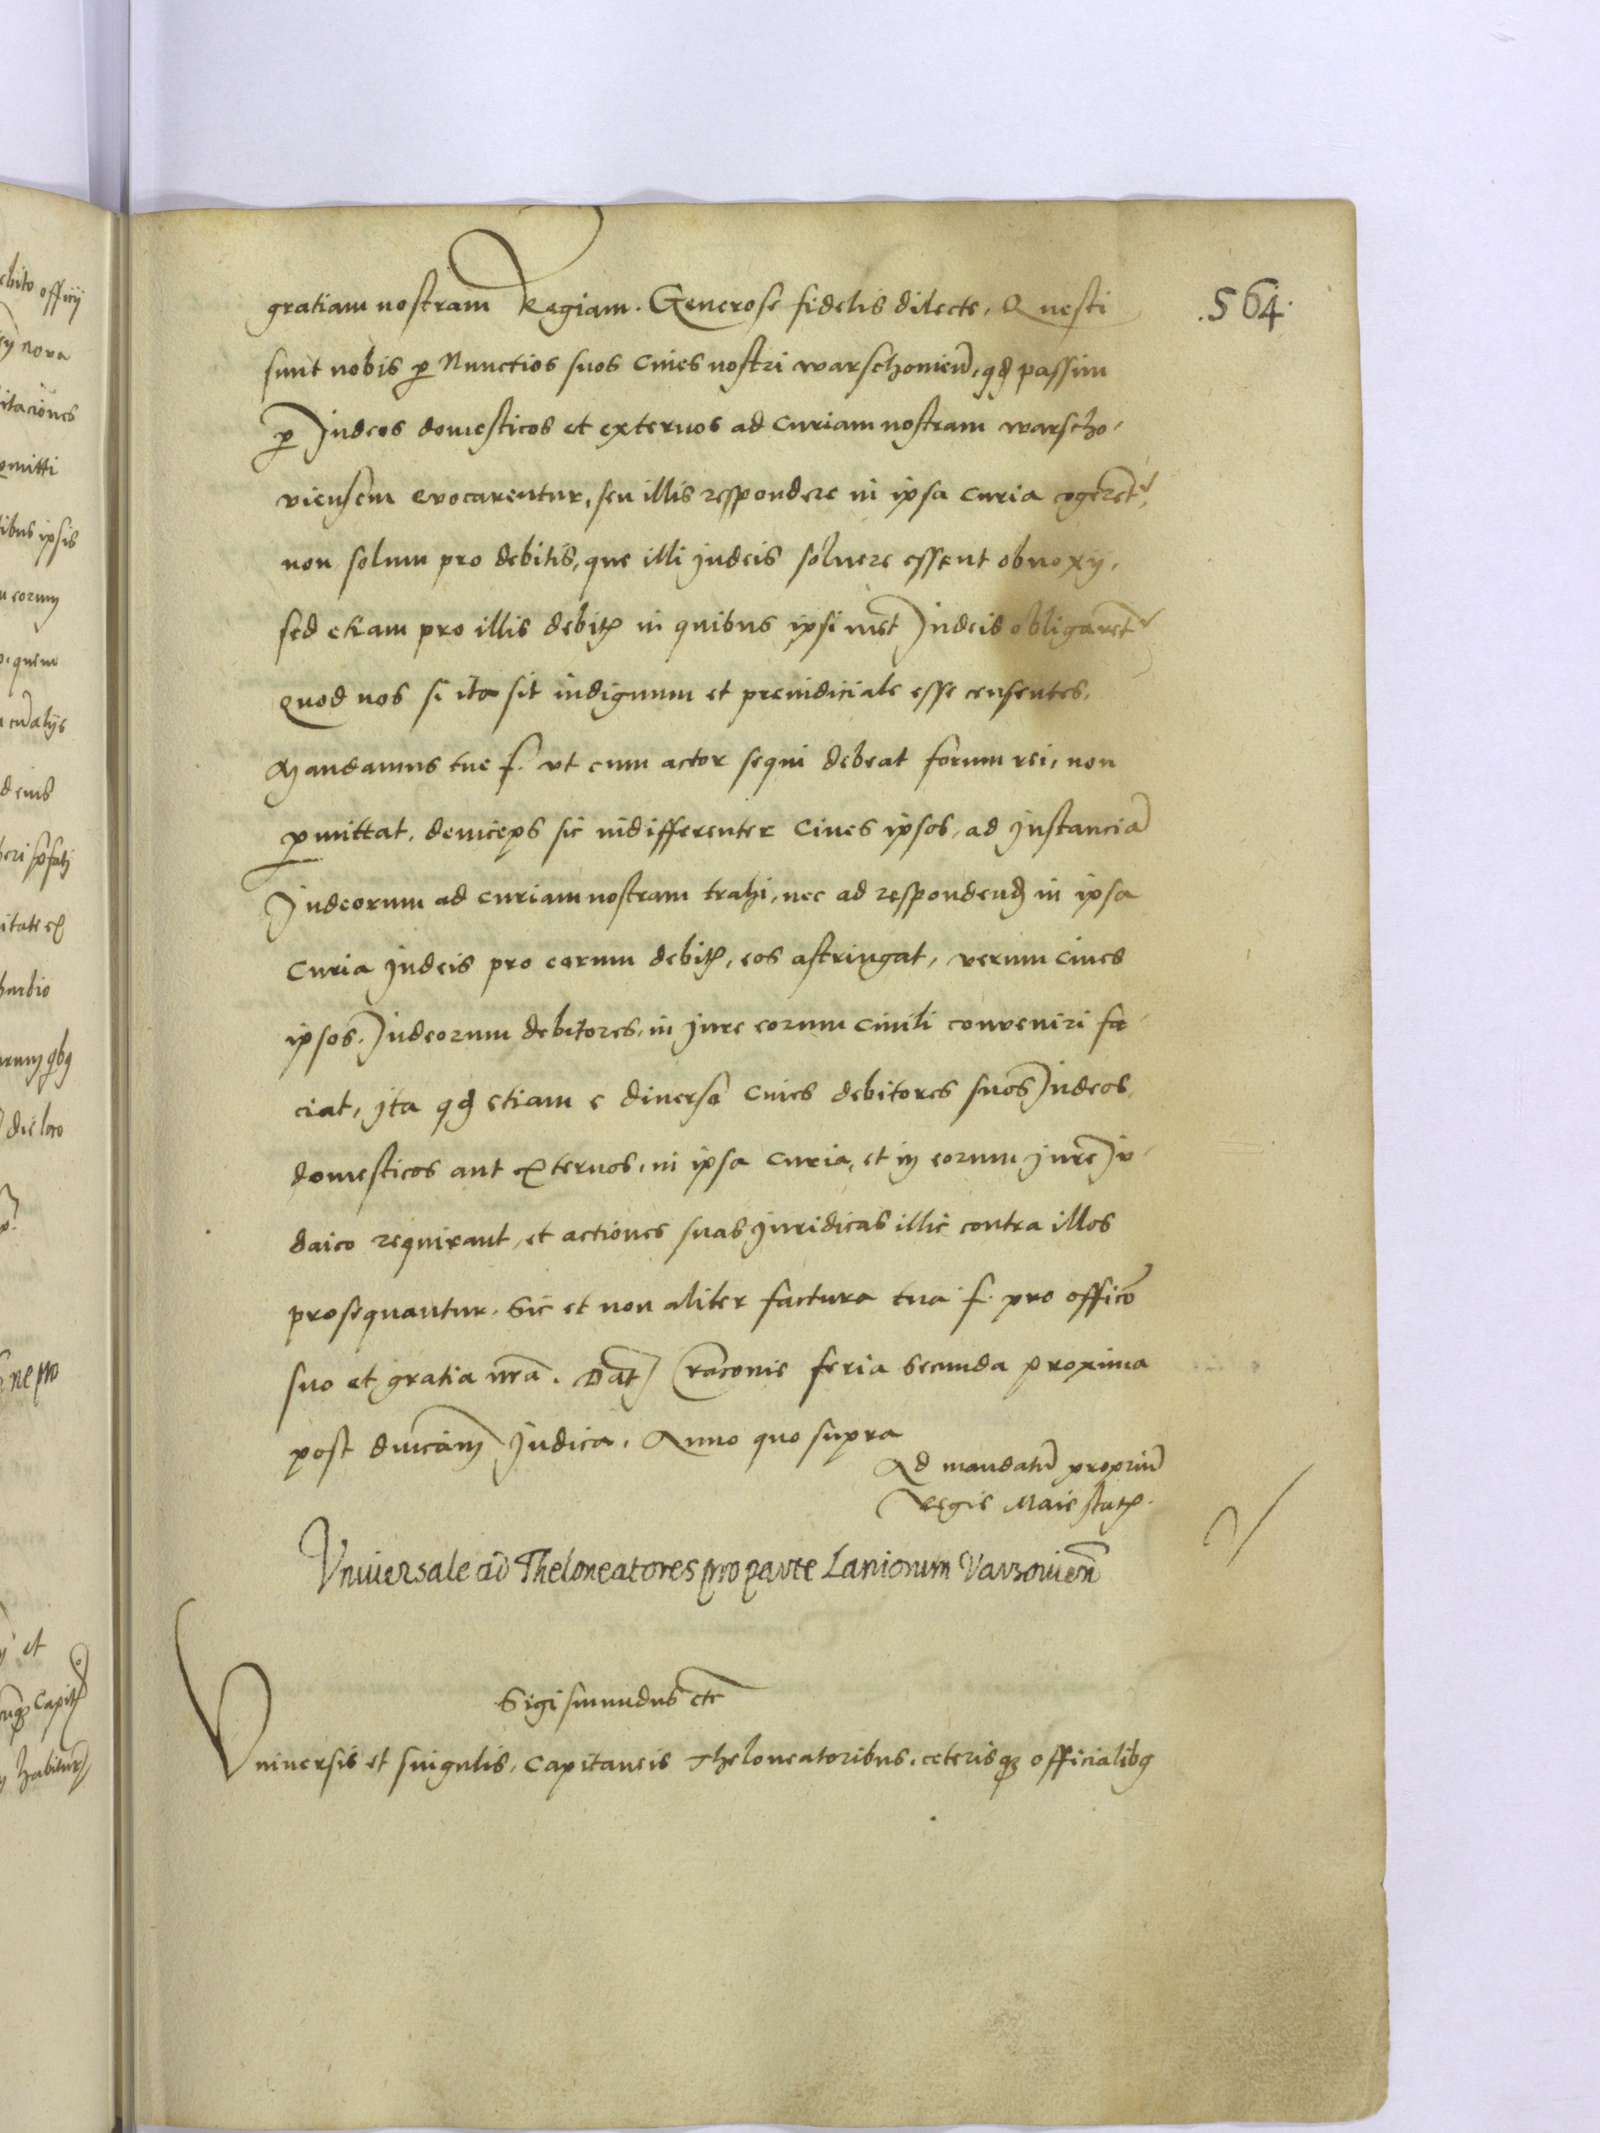 564.
gratiam nostram Regiam. Generose fidelis dilecte, Questi
sunt nobis ꝑ Nunctios suos Ciues nostri warschouien̄, qđ passim
ꝑ Judeos domesticos et externos ad Curiam nostram warscho-
viensem evocarentur, seu illis respondere in ipsa Curia cogerēt᷑,
non solum pro debitis, que illi Judeis soluere essent obnoxij,
sed etiam pro illis debitꝭ in quibus ipsi met Judeis obligarēt᷑
Quod nos si ita sit indignum et preiudiciale esse censentes,
Mandamus tue f. vt cum actor sequi debeat forum rei, non
ꝑmittat, deinceps sic indifferenter Ciues ipsos, ad Instanciā
Judeorum ad Curiam nostram trahi, nec ad respondenđ in ipsa
Curia Judeis pro eorum debitꝭ, eos astringat, verum Ciues
ipsos, Judeorum debitores, in Jure eorum Ciuili conveniri fa-
ciat, Ita qđ etiam e diuerso Ciues debitores suos Judeos,
domesticos aut externos, in ipsa Curia, et in eorum Jure Ju-
daico requirant, et actiones suas Juridicas illic contra illos
prosequantur. Sic et non aliter factura tua f. pro officō
suo et gratia nr̄a. Dat̄ Cracouie feria Secunda proxima
post dn̄icam Judica, Anno quo supra
Ad mandatū propriū
Regie Maiestatꝭ.
Vniuersale ad Theloneatores pro parte Lanionum Varsouien̄
Sigismundus etc̄
Vniuersis et singulis, Capitaneis Theloneatoribus, ceterisqꝫ officialibꝯ